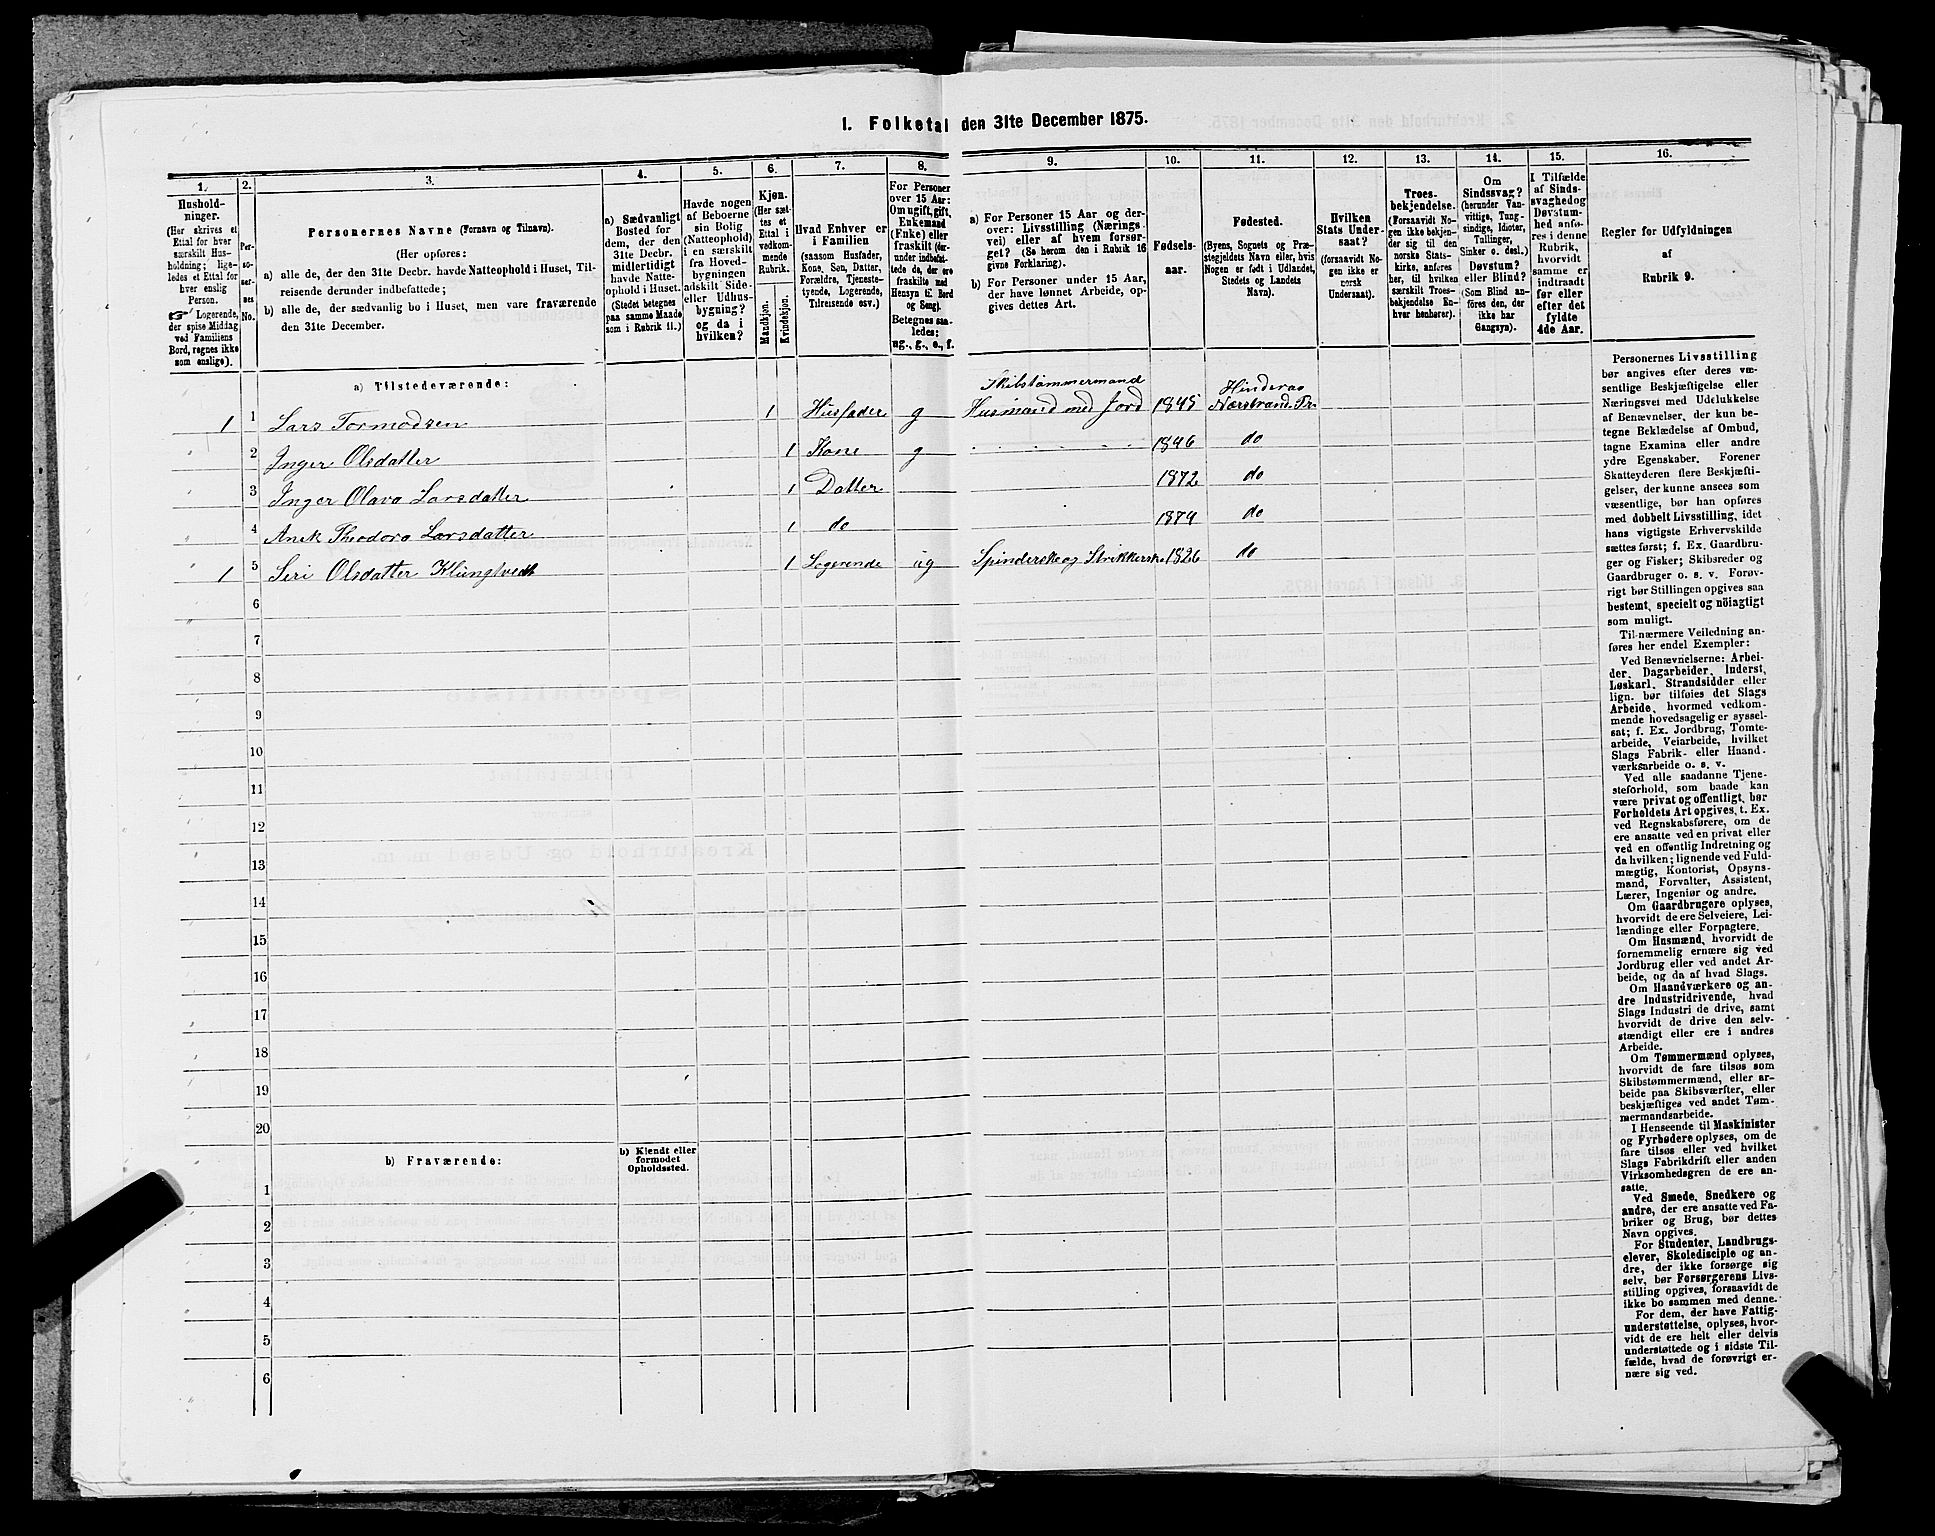 1. Folketal den 31te December 1875.
1.
2.
3.
4.
5.
6.
7.
8.
9.
10.
11.
12.
13.
14.
15.
16.
Hushold-
ninger.
(Her skrives et
Ettal for hver
særskilt Hus-
holdning; lige-
ledes et Ettal for
hver enslig
Person.
Logerende,
der spise Middag
ved Familiens
Bord, regnes ikke
som enslige).
Per-
so-
ner-
nes
No.
Personernes Navne (Fornavn og Tilnavn).
(Her opføres:
a) alle de, der den 31te Decbr. havde Natteophold i Huset, Til-
reisende derunder indbefattede;
b) alle de, der sædvanlig bo i Huset, men vare fraværende
den 31te December.
a) Sædvanligt
Bosted for
dem, der den
31te Decbr.
midlertidigt
havde Natte-
ophold i Huset.
(Stedet betegnes
paa samme Maade
som i Rubrik 11.)
Havde nogen
af Beboerne
sin Bolig
(Natteophold)
i en særskilt
fra Hoved-
bygningen
adskilt Side-
eller Udhus-
bygning?
og da i
hvilken?
Kjøn.
(Her sæt-
tes et
Ettal i
vedkom-
mende
Rubrik.
Mandkjøn.
Kvindekjøn.
Hvad Enhver er
i Familien
(saasom Husfader,
Kone, Søn, Datter,
Forældre, Tjeneste-
tyende, Logerende,
Tilreisende osv.)
For Personer
over 15 Aar:
Om ugift, gift,
Enkemand
(Enke) eller
fraskilt (der-
under indbefat-
tede de, der ere
fraskilte med
Hensyn til Bord
og Seng).
Betegnes saa-
ledes:
ug., g., e., f.
a) For Personer 15 Aar og der-
over: Livsstilling (Nærings-
vei) eller af hvem forsør-
get? (Se herom den i Rubrik 16
givne Forklaring).
b) For Personer under 15 Aar,
der have lønnet Arbeide, op-
gives dettes Art.
Fødsels-
aar.
Fødested.
(Byens, Sognets og Præ-
stegjeldets Navn eller, hvis
Nogen er født i Udlandet,
Stedets og Landets
Navn).
Hvilken
Stats Under-
saat?
(forsaavidt No-
gen ikke er
norsk
Undersaat).
Troes-
bekjendelse.
(Forsaavidt No-
gen ikke bekjen-
der sig til den
norske Stats-
kirke, anføres
her, til hvilken
særskilt Troes-
bekjendelse En-
hver henhører).
Om
Sindssvag?
(herunder Van-
vittige, Idioter,
Tullinger,
Sinker o. desl.)
Døvstum?
eller Blind?
(Som Blind an-
føres den, der
ikke har
Gangsyn).
I Tilfælde
af Sinds-
svaghed og
Døvstum-
hed anfø-
res i denne
Rubrik,
hvorvidt
samme er
indtraadt
før eller
efter det
fyldte
4de Aar.
Regler for Udfyldningen
af
Rubrik 9.
a) Tilstedeværende:
Skibstømmermand
Hinderaa
1 1 Lars Tormodsen 1 Husfader g Husmand med Jord 1845 Nærstrand Pr.
2 Inger Olsdatter 1 Kone g 1846 do
3 Inger Olava Larsdatter 1 Datter 1872 do
4 Theodora Larsdatter 1 do 1874 do
1 5 Seri Olsdatter Klungtvedt 1 Logerende ug Spinderske og Strikkerske 1826 do
6
7
8
9
10
11
12
13
14
15
16
17
18
19
20
b) Fraværende:
b) Kjendt eller
formodet
Opholdssted.
1
2
3
4
5
6
Personernes Livsstilling
bør angives efter deres væ-
sentlige Beskjæftigelse eller
Næringsvei med Udelukkelse
af Benævnelser, der kun be-
tegne Beklædelse af Ombud,
tagne Examina eller andre
ydre Egenskaber. Forener
Skatteyderen flere Beskjæfti-
gelser, der kunne ansees som
væsentlige, bør han opføres
med dobbelt Livsstilling, idet
hans vigtigste Erhvervskilde
sættes først; f. Ex. Gaardbru-
ger og Fisker; Skibsreder og
Gaardbruger o. s. v. Forøv-
rigt bør Stillingen opgives saa
bestemt, specielt og nøiagtigt
som muligt.
Til nærmere Veiledning an-
føres her endel Exempler:
Ved Benævnelserne: Arbei-
der, Dagarbeider, Inderst,
Løskarl, Strandsidder eller
lign. bør tilføies det Slags
Arbeide, hvormed vedkom-
mende hovedsagelig er syssel-
sat; f. Ex. Jordbrug, Tomte-
arbeide, Veiarbeide, hvilket
Slags Fabrik- eller Haand-
værksarbeide o. s. v.
Ved alle saadanne Tjene-
steforhold, som baade kan
være privat og offentligt, bør
Forholdets Art opgives, t. Ex.
ved Regnskabsførere, om de
ere ansatte ved en privat eller
ved en offentlig Indretning og
da hvilken; lignende ved Fuld-
mægtig, Kontorist, Opsyns-
mand, Forvalter, Assistent,
Lærer, Ingeniør og andre.
Om Gaardbrugere oplyses,
hvorvidt de ere Selveiere, Lei-
lændinge eller Forpagtere.
Om Husmænd, hvorvidt de
fornemmelig ernære sig ved
Jordbrug eller ved andet Ar-
beide, og da af hvad Slags.
Om Haandværkere og an-
dre Industridrivende, hvad
Slags Industri de drive, samt
hvorvidt de drive den selv-
stændigt eller ere i andres
Arbeide.
Om Tømmermænd oplyses,
hvorvidt de fare tilsøs som
Skibstømmermænd, eller ar-
beide paa Skibsværfter, eller
beskjæftiges ved andet Tøm-
mermandsarbeide.
I Henseende til Maskinister
og Fyrbødere oplyses, om de
fare tilsøs eller ved hvilket
Slags Fabrikdrift eller anden
Virksomhedsgren de ere an-
satte.
Ved Smede, Snedkere og
andre, der ere ansatte ved Fa-
briker og Brug, bør dettes
Navn opgives.
For Studenter, Landbrugs-
elever, Skoledisciple og an-
dre, der ikke forsørge sig
selv, bør Forsørgerens Livs-
stilling opgives, forsaavidt de
ikke bo sammen med denne.
For dem, der have Fattig-
understøttelse, oplyses, hvor-
vidt de ere helt eller delvis
understøttede og i sidste Til-
fælde, hvad de forøvrigt er-
nære sig ved.